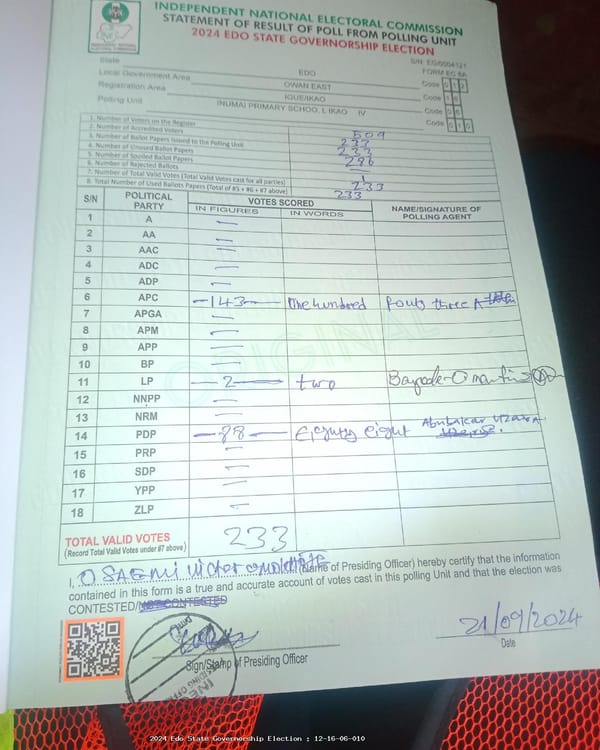 INDEPENDENT NATIONAL ELECTORAL COMMISSION
STATEMENT OF RESULT OF POLL FROM POLLING UNIT
2024 EDO STATE GOVERNORSHIP ELECTION
S/N: EG/0004121
FORM EC 8A
State EDO
Local Government Area OWAN EAST Code 12
Registration Area IGUE/IKAO Code 16
Polling Unit INUMAI PRIMARY SCHOOL IKAO IV Code 06
Code 010
1. Number of Voters on the Register 509
2. Number of Accredited Voters 233
3. Number of Ballot Papers Issued to the Polling Unit
4. Number of Unused Ballot Papers 296
5. Number of Spoiled Ballot Papers
6. Number of Rejected Ballots
7. Number of Total Valid Votes (Total Valid Votes cast for all parties) 233
8. Total Number of Used Ballots Papers (Total of #5 + #6 + #7 above) 233
S/N POLITICAL PARTY VOTES SCORED NAME/SIGNATURE OF POLLING AGENT
IN FIGURES IN WORDS
1 A —
2 AA —
3 AAC —
4 ADC —
5 ADP —
6 APC —143— One hundred fouty three A
7 APGA —
8 APM —
9 APP —
10 BP —
11 LP —2— two
12 NNPP —
13 NRM —
14 PDP —88— Eighty eight Abubakar
15 PRP —
16 SDP —
17 YPP —
18 ZLP —
TOTAL VALID VOTES 233
(Record Total Valid Votes under #7 above)
ORIGINAL
I, Victor (Name of Presiding Officer) hereby certify that the information
contained in this form is a true and accurate account of votes cast in this polling Unit and that the election was
CONTESTED/NOT CONTESTED
Sign/Stamp of Presiding Officer
21/09/2024
Date
2024 Edo State Governorship Election : 12-16-06-010